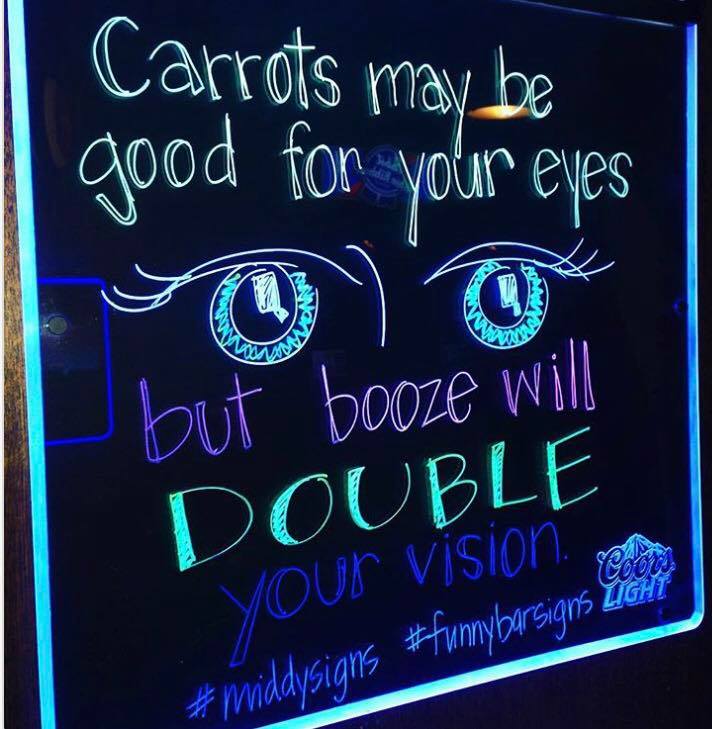 Carrots may be
good for your eyes
but booze will
DOUBLE
your vision.
Coors
LIGHT
#middysigns #funnybarsigns